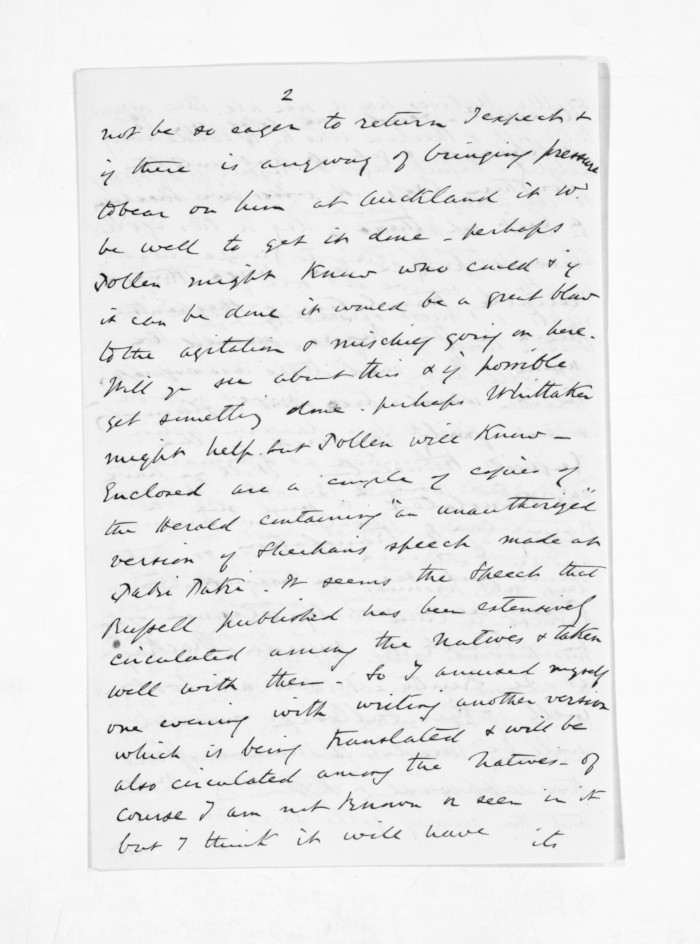 2
not be so eager to return I expect &
if there is anyway of bringing pressure
to bear on him at Auckland it wd.
be well to get it done - perhaps
Pollen might know who could & if
it can be done it would be a great blow
to the agitation & mischief going on here.
Will you see about this & if possible
get something done. perhaps Whittaker
might help. but Pollen will know -
Enclosed are a couple of copies of
the Herald containing "an unauthorized"
version of Sheehan's speech made at
Paki Paki. It seems the speech that
Russell published has been extensively
circulated among the Natives & taken
well with them - So I amused myself
one evening with writing another version
which is being translated & will be
also circulated among the Natives - of
course I am not known or seen in it
but I think it will have its